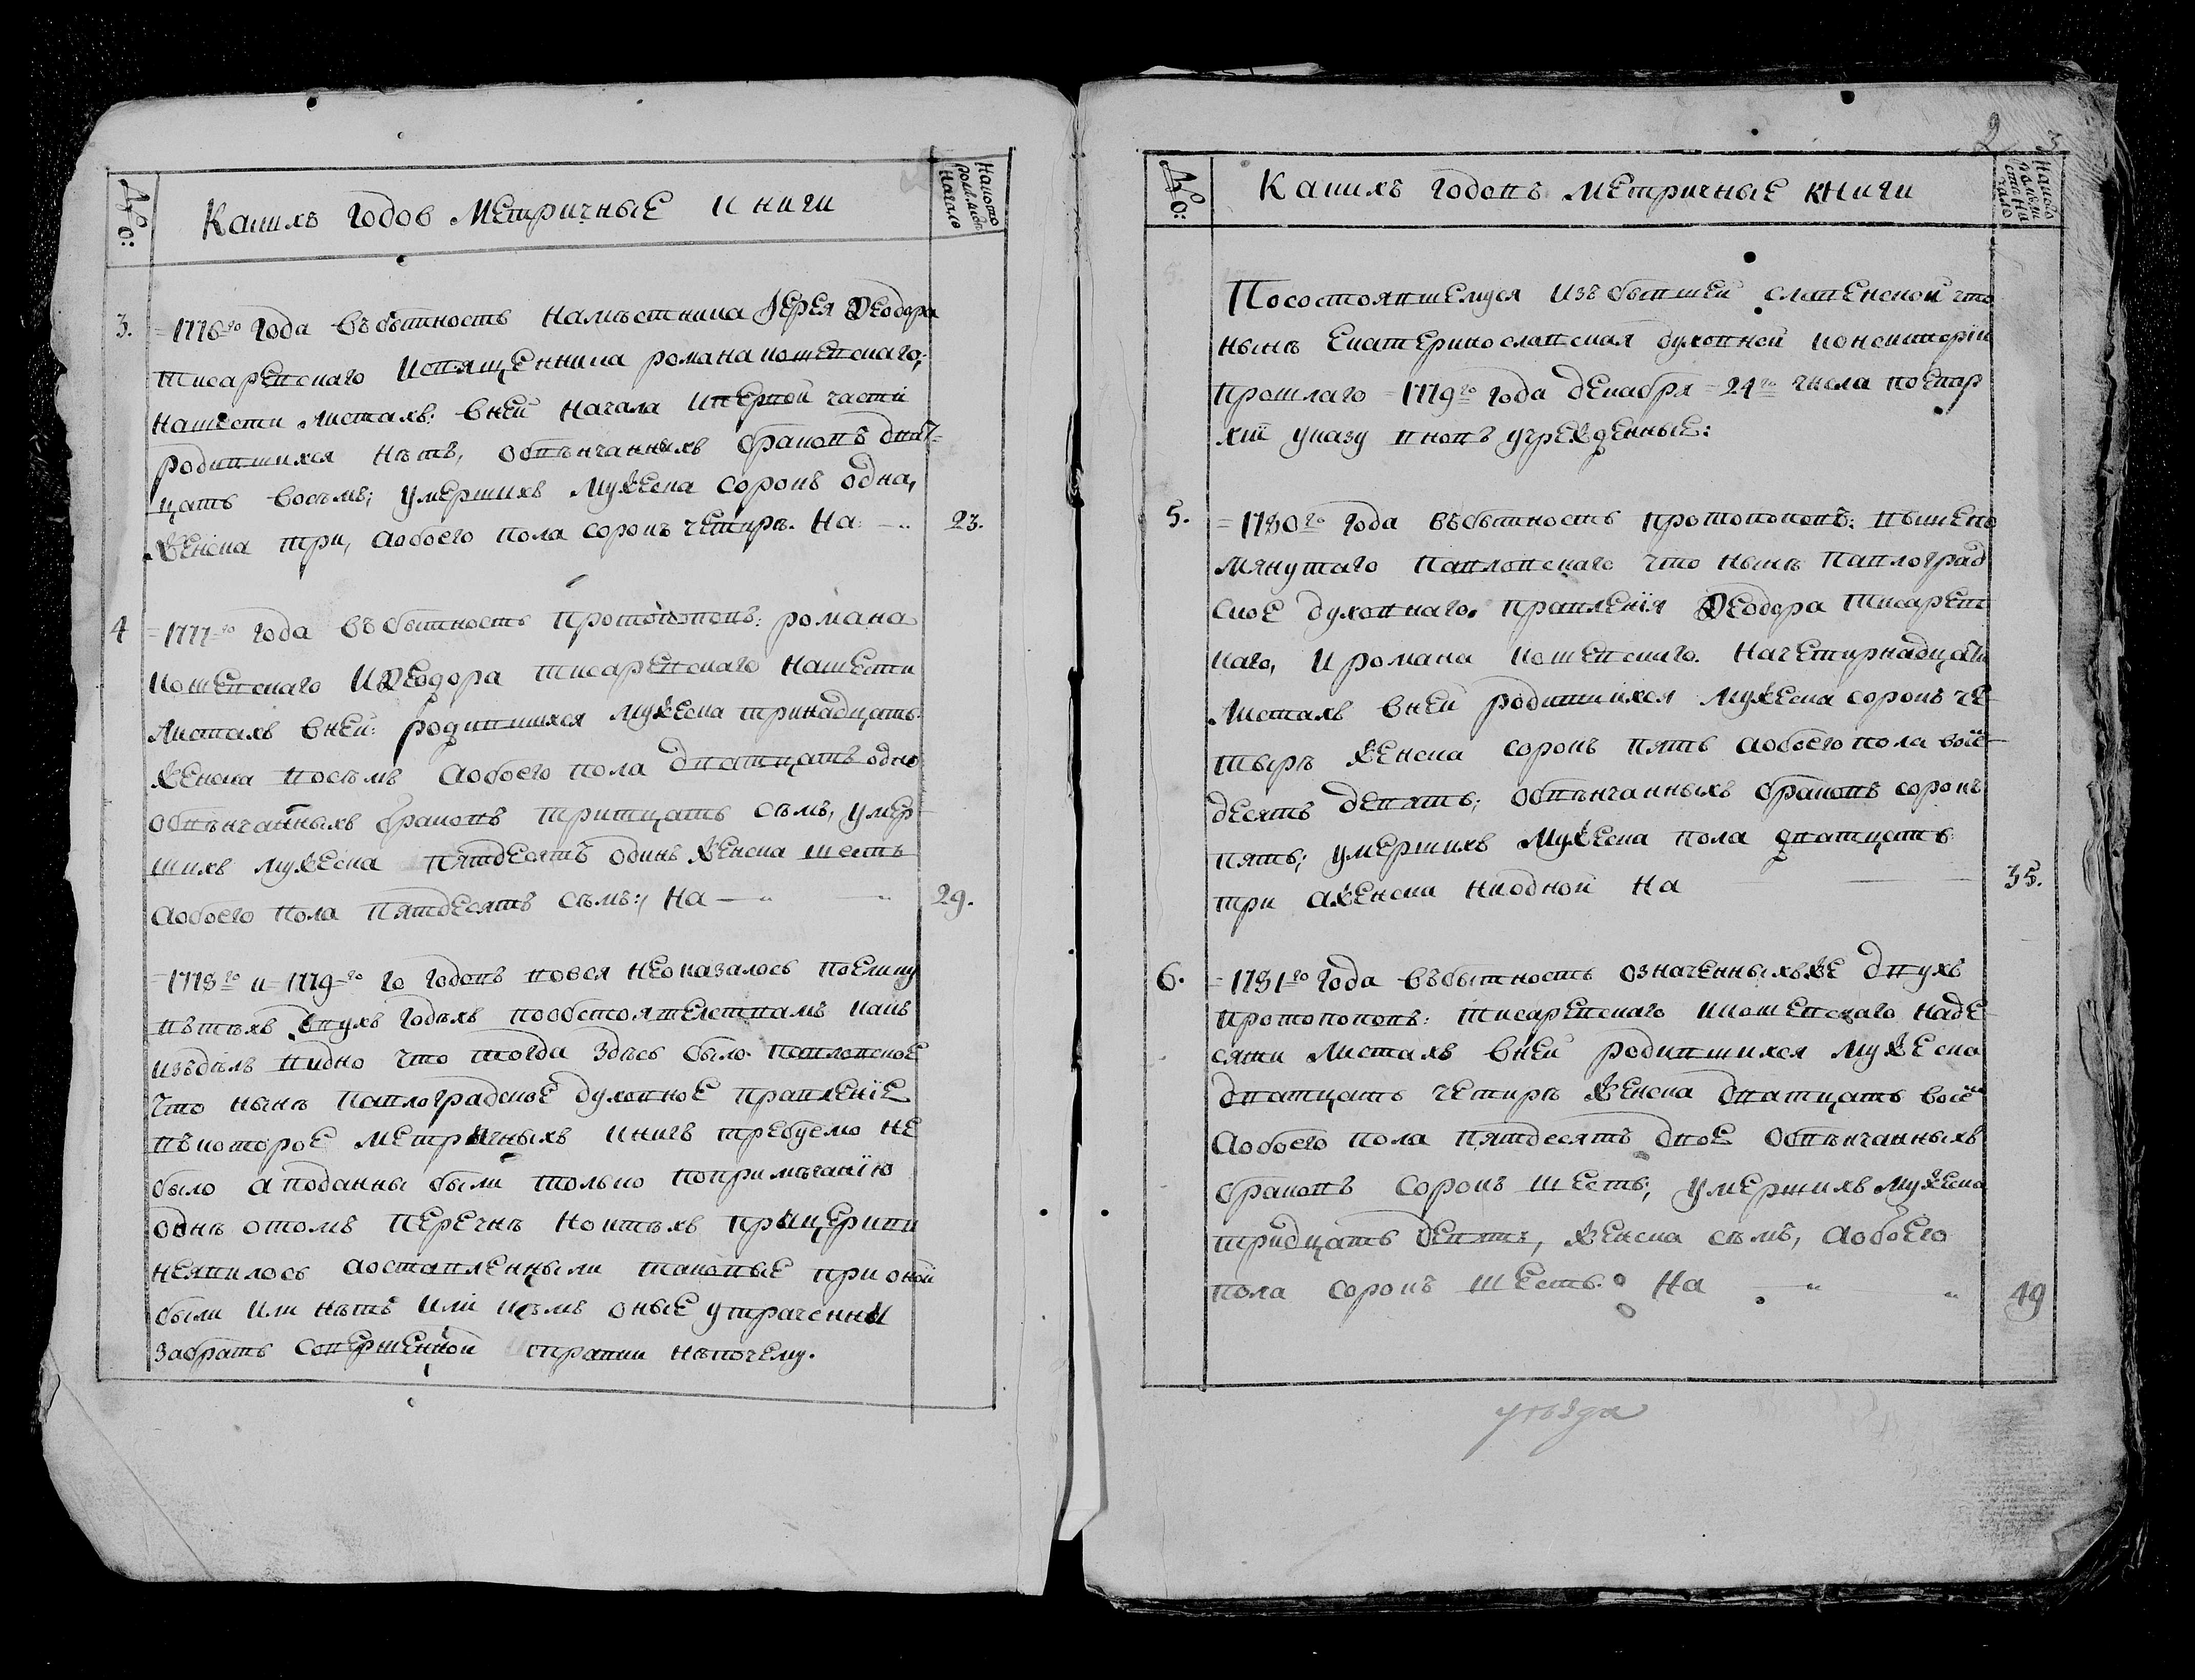 №о:
Какихъ годов Метричные книги
На кото
ром листѣ
Начало
3.
=1776го года въ бытность намѣстника Iерея Ѳеодора
Писаревскаго и священника романа кошевскаго,
на шести листахъ: в ней начала и первой части
родившихся нѣтъ, обвѣнчанныхъ браковъ дват-
цать восѣмъ; умершихъ мужеска сорокъ одна,
женска три, а обоего пола сорокъ четыри. На:
23.
4
=1777го года въ бытность протопоповъ: романа
кошевскаго и Ѳеодора писаревскаго на шести
листахъ в ней: родившихся мужеска тринадцать
женска восѣмъ а обоего пола дватцать одно
обвѣнчанныхъ браковъ тритцать сѣмъ, умер
шихъ мужеска пятдесятъ одинъ женска шесть
а обоего пола пятдесятъ сѣмъ:, На
29.
=1778го и =1779го го годовъ вовся не оказалось поелику
въ тѣхъ двухъ годѣхъ по обстоятелствамъ какъ
изъ дѣлъ видно что тогда здѣсь было павловское
что нынѣ павлоградское духовное правленїе
въ которое метричныхъ книгъ требуемо не
было а поданны были только по примѣчанїю
однѣ о томъ перечнѣ но и тѣхъ при церкви
не явилось а оставленными таковые при оной
были или нѣтъ или кѣмъ оные утраченны
забрать совершенной справки нѣ по чему.
2
№о:
Какихъ годовъ метричные книги
По состоявшемуся изъ бывшей славенской что
нынѣ Екатеринославская духовной консисторїи
прошлаго =1779го года декабря =24го числа по Епар
хїи указу вновъ учрежденные:
5.
=1780го года въ бытность протопоповъ: вышепо
мянутаго павловскаго что нынѣ павлоград
ское духовнаго правленїя Ѳеодора писарев
каго, и романа кошевскаго. На четырнадцати
листахъ в ней родившихся мужеска сорокъ че
тырѣ женска сорокъ пять а обоего пола восѣ
десятъ девять; обвѣнчанныхъ браковъ сорокъ
пять; умершихъ мужеска пола дватцать
три а женска ни одной На
35.
6.
=1781го года въ бытность означенныхъ же двухъ
протопоповъ: писаревскаго и кошевскаго на де
сяти листахъ в ней родившихся мужеска
дватцать четыри женска дватцать восѣ
а обоего пола пятдесятъ двое обвѣнчанныхъ
браковъ сорокъ шесть; умершихъ мужеска
тридцать девять, женска сѣмъ, а обоего
пола сорокъ шесть. На
49
уѣзда